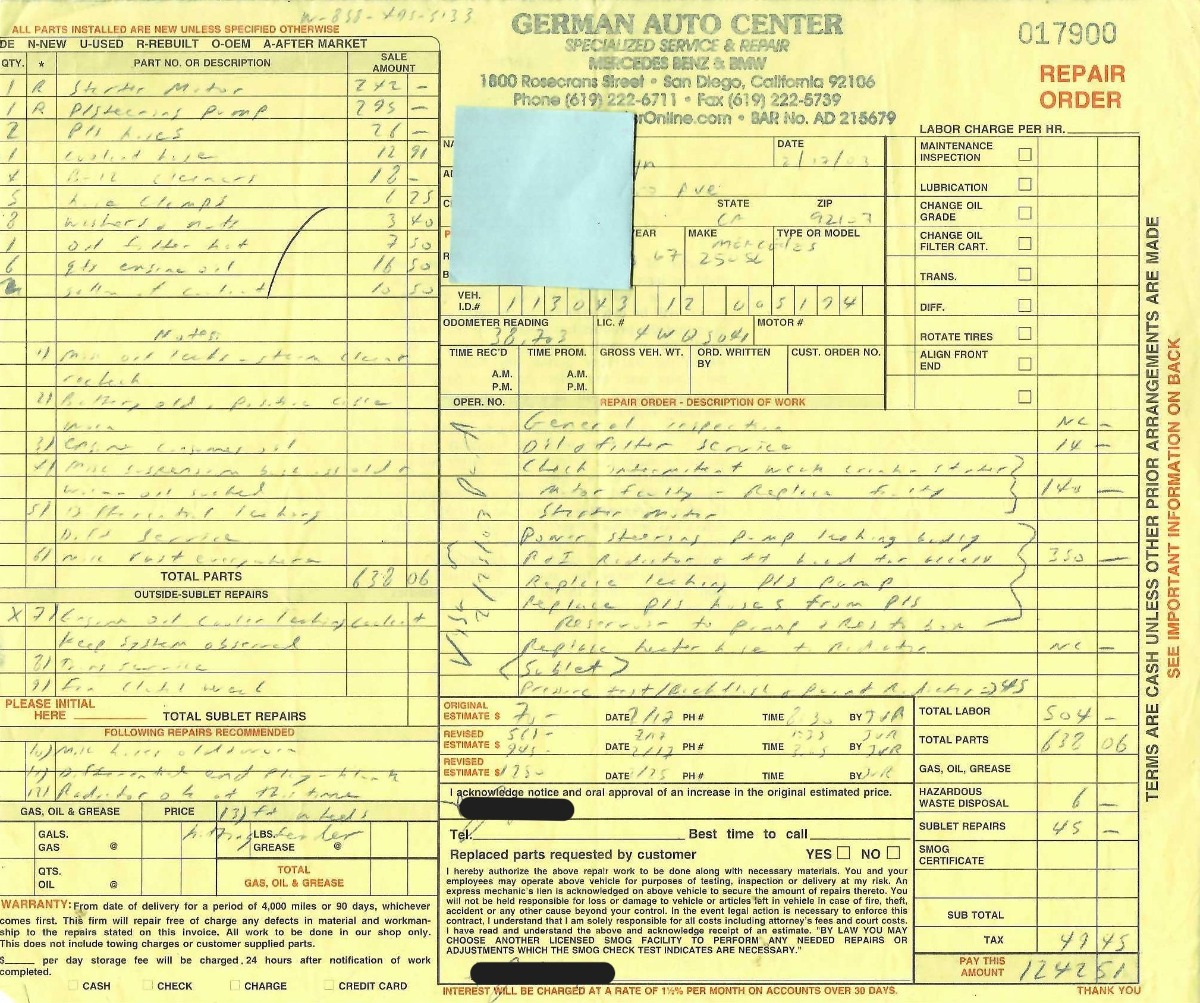 ALL PARTS INSTALLED ARE NEW UNLESS SPECIFIED OTHERWISE
DE N-NEW U-USED R-REBUILT O-OEM A-AFTER MARKET
QTY. * PART NO. OR DESCRIPTION SALE AMOUNT
1 R Starter Motor 242 -
1 R P/Steering Pump 295 -
2 P/S hoses 26 -
1 coolant hose 12 91
4 B-12 cleaners 18 -
5 hose clamps 6 25
8 washers, nuts 3 40
1 oil filter kit 7 50
6 qts engine oil 16 50
2 gallon of coolant 10 50
Notes:
1) Misc oil leaks - steam clean
recheck
2) Battery old, positive cable
worn
3) Engine consumes oil
4) Misc suspension bushings old &
worn oil soaked
5) Differential leaking
Diff Service
6) Misc rust everywhere
TOTAL PARTS 638 06
OUTSIDE-SUBLET REPAIRS
X 7) Engine oil cooler leaking coolant
keep system observed
8) Trans service
9) Fan clutch weak
PLEASE INITIAL
HERE TOTAL SUBLET REPAIRS
FOLLOWING REPAIRS RECOMMENDED
10) Misc hoses old & worn
11) Differential end play - clunk
12) Radiator ok at this time
GAS, OIL & GREASE PRICE 13) ft wheels
hitting fender
GALS. GAS @ LBS. GREASE @
QTS. OIL @ TOTAL GAS, OIL & GREASE
WARRANTY: From date of delivery for a period of 4,000 miles or 90 days, whichever
comes first. This firm will repair free of charge any defects in material and workman-
ship to the repairs stated on this invoice. All work to be done in our shop only.
This does not include towing charges or customer supplied parts.
$ per day storage fee will be charged, 24 hours after notification of work
completed.
CASH CHECK CHARGE CREDIT CARD
GERMAN AUTO CENTER
SPECIALIZED SERVICE & REPAIR
MERCEDES BENZ & BMW
1800 Rosecrans Street • San Diego, California 92106
Phone (619) 222-6711 • Fax (619) 222-5739
erOnline.com • BAR No. AD 215679
017900
REPAIR
ORDER
NA DATE 2/17/03
AD Ave
STATE ZIP
CA 92107
EAR MAKE TYPE OR MODEL
67 Mercedes 250SL
VEH. I.D.# 113043 12 005194
ODOMETER READING LIC. # MOTOR #
38,703 4WQS041
TIME REC'D TIME PROM. GROSS VEH. WT. ORD. WRITTEN BY CUST. ORDER NO.
A.M. A.M.
P.M. P.M.
OPER. NO. REPAIR ORDER - DESCRIPTION OF WORK
General inspection NC -
Oil & filter service 14 -
Check intermitent weak crank starter
Motor faulty - Replace faulty 140 -
Starter Motor
Power steering pump leaking badly
R&I Radiator & ft hood for access 350 -
Replace leaking P/S Pump
Replace P/S hoses from P/S
Reservoir to pump & Res to box
Replace heater hose to Radiator NC -
(Sublet)
Pressure test/Backflush, paint Radiator 45
ORIGINAL ESTIMATE $ 70- DATE 2/17 PH # TIME 8:30 BY JVR
REVISED ESTIMATE $ 561- 945- DATE 2/17 2/17 PH # TIME 1:35 3:05 BY JVR JVR
REVISED ESTIMATE $ 1250- DATE 2/25 PH # TIME BY JVR
I acknowledge notice and oral approval of an increase in the original estimated price.
Tel. Best time to call
Replaced parts requested by customer YES NO
I hereby authorize the above repair work to be done along with necessary materials. You and your
employees may operate above vehicle for purposes of testing, inspection or delivery at my risk. An
express mechanic's lien is acknowledged on above vehicle to secure the amount of repairs thereto. You
will not be held responsible for loss or damage to vehicle or articles left in vehicle in case of fire, theft,
accident or any other cause beyond your control. In the event legal action is necessary to enforce this
contract, I understand that I am solely responsible for all costs including attorney's fees and court costs.
I have read and understand the above and acknowledge receipt of an estimate. "BY LAW YOU MAY
CHOOSE ANOTHER LICENSED SMOG FACILITY TO PERFORM ANY NEEDED REPAIRS OR
ADJUSTMENTS WHICH THE SMOG CHECK TEST INDICATES ARE NECESSARY."
INTEREST WILL BE CHARGED AT A RATE OF 1½% PER MONTH ON ACCOUNTS OVER 30 DAYS. THANK YOU
LABOR CHARGE PER HR.
MAINTENANCE INSPECTION
LUBRICATION
CHANGE OIL GRADE
CHANGE OIL FILTER CART.
TRANS.
DIFF.
ROTATE TIRES
ALIGN FRONT END
TOTAL LABOR 504 -
TOTAL PARTS 638 06
GAS, OIL, GREASE
HAZARDOUS WASTE DISPOSAL 6 -
SUBLET REPAIRS 45 -
SMOG CERTIFICATE
SUB TOTAL
TAX 49 45
PAY THIS AMOUNT 1242 51
TERMS ARE CASH UNLESS OTHER PRIOR ARRANGEMENTS ARE MADE
SEE IMPORTANT INFORMATION ON BACK